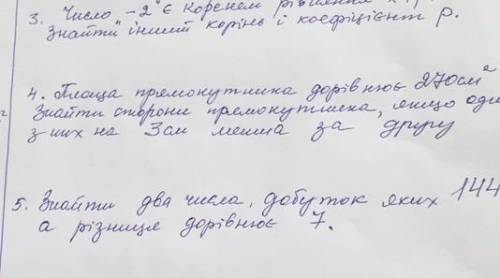 3. Число -2 є коренем рівняння
Знайти інший корінь і коефіцієнт р.
4. Площа прямокутника дорівнює 270см²
Знайти сторони прямокутника, якщо од
з них на 3см менша за другу
5. Знайти два числа, добуток яких 144
а різниця дорівнює 7.